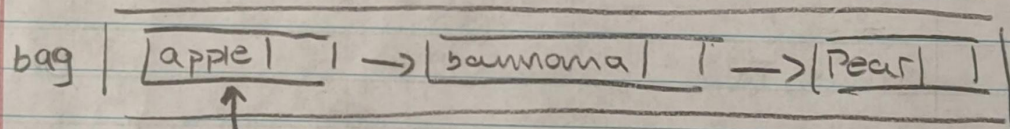 bag | apple | → | bannana | → | Pear |